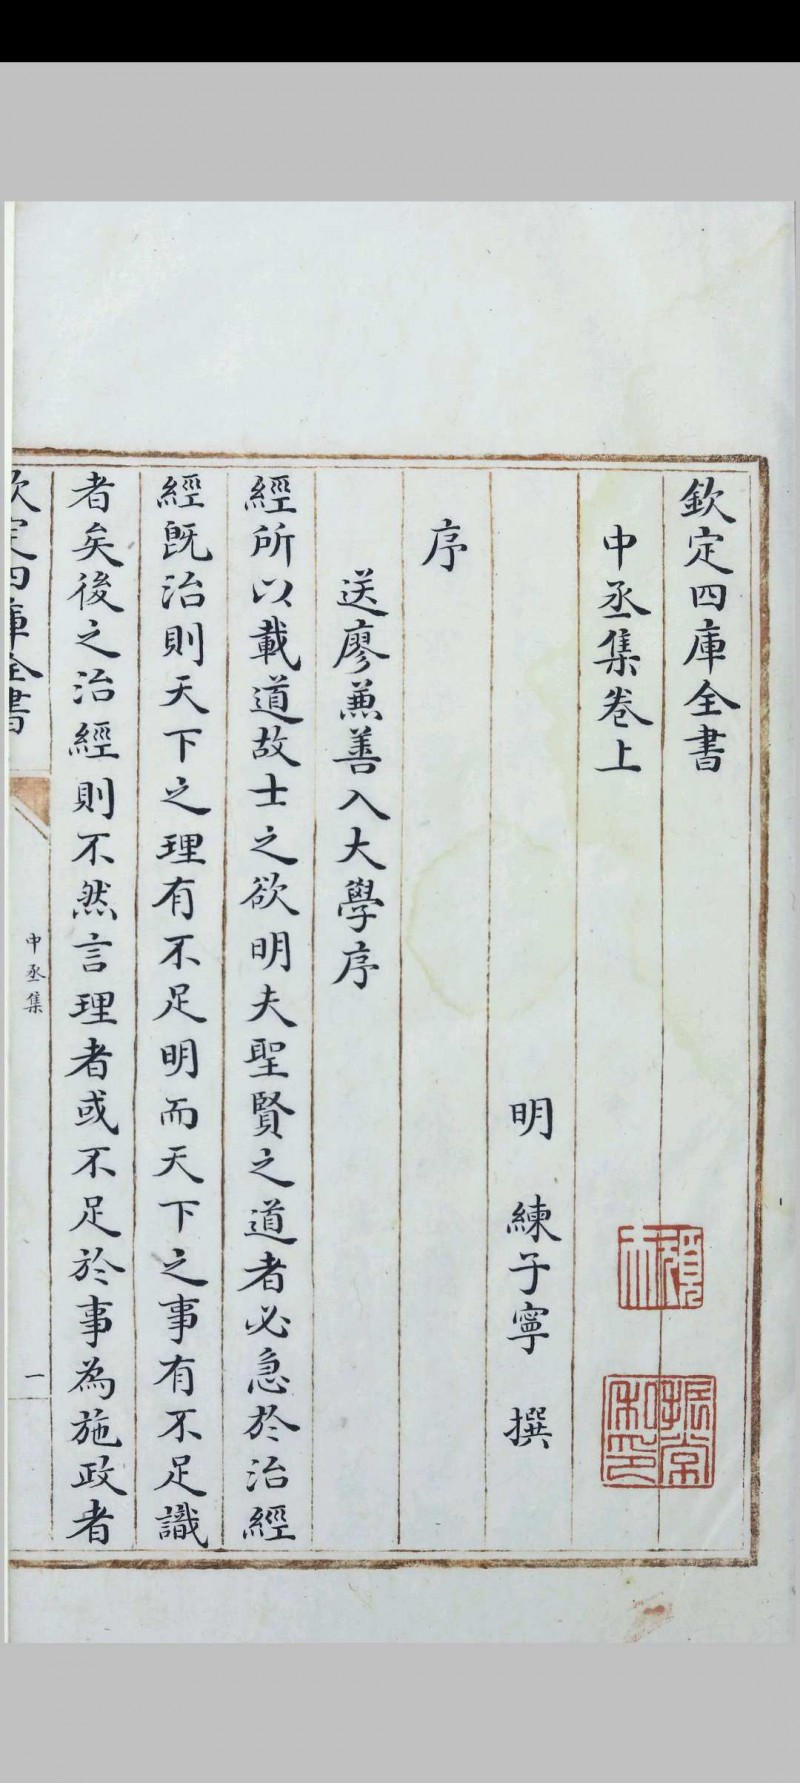 欽定四庫全書
中丞集卷上
明 練子寧 撰
序
送廖兼善入大學序
經所以載道故士之欲明夫聖賢之道者必急於治經
經既治則天下之理有不足明而天下之事有不足識
者矣後之治經則不然言理者或不足於事為施政者
欽定四庫全書
中丞集
一